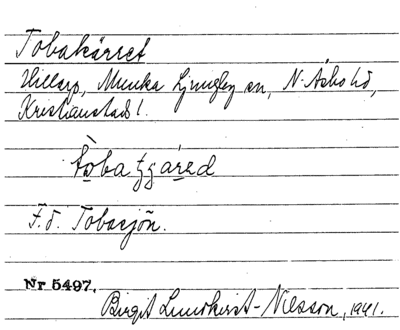 Tobakärret
Hillarp, Munka Ljungby sn, N. Åsbo hd,
Kristianstads l.
tobatʒäred
F.d. Tobasjön.
Nr 5497.
Birgit Lundkvist-Nilsson, 1941.